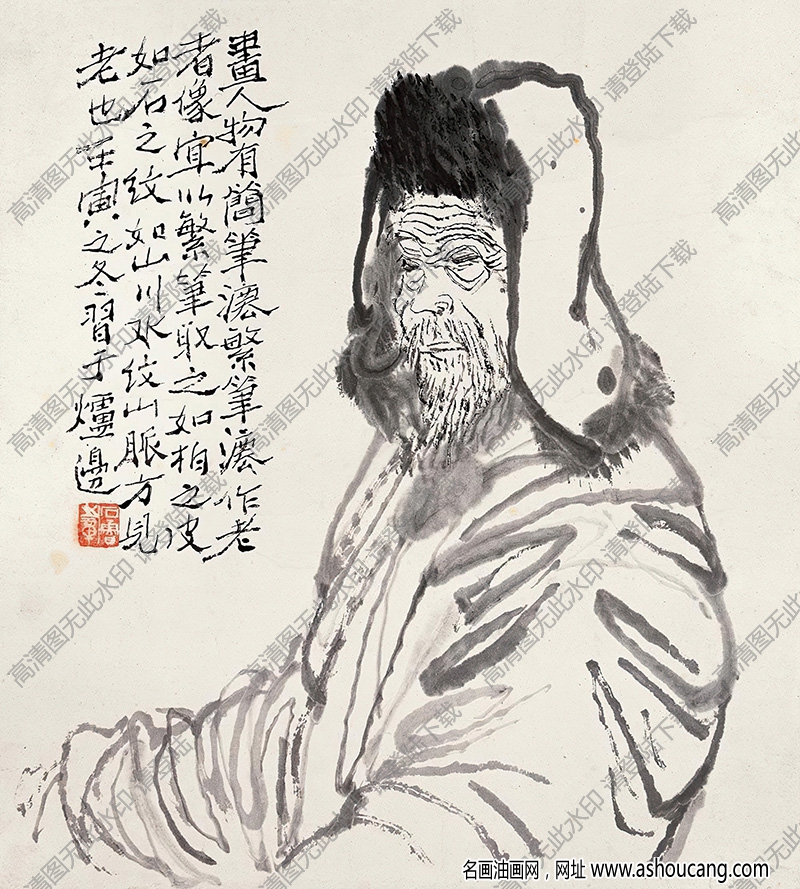 畫人物有簡筆法繁筆法作老
者像宜以繁筆取之如柏之皮
如石之紋如山川水紋山脈方見
老也壬寅之冬習于爐邊
石魯
高清图无此水印 请登陆下载
名画油画网，网址 www.ashoucang.com